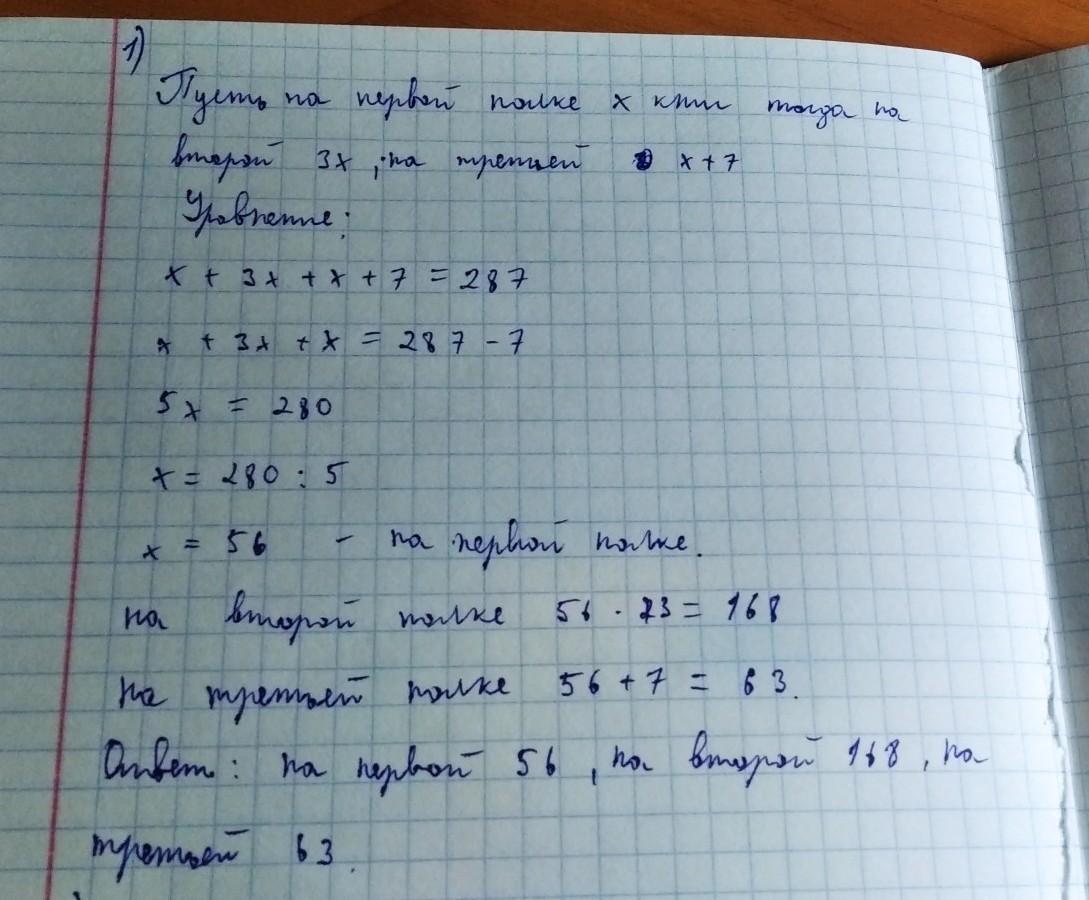 1)
Пусть на первой полке x книг тогда на
второй 3x, на третьей x + 7
Уравнение:
x + 3x + x + 7 = 287
x + 3x + x = 287 - 7
5x = 280
x = 280 : 5
x = 56 - на первой полке.
на второй полке 56 · 3 = 168
на третьей полке 56 + 7 = 63.
Ответ: на первой 56, на второй 168, на
третьей 63.